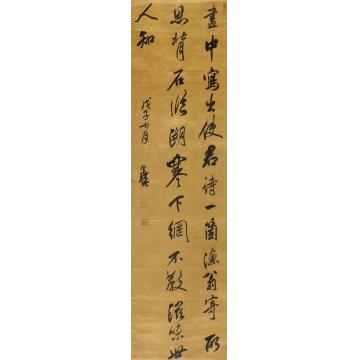 畫中寫出使君詩一箇漁翁寄所
思背石臨谿寒下網不教滋味世
人知
戊子十月